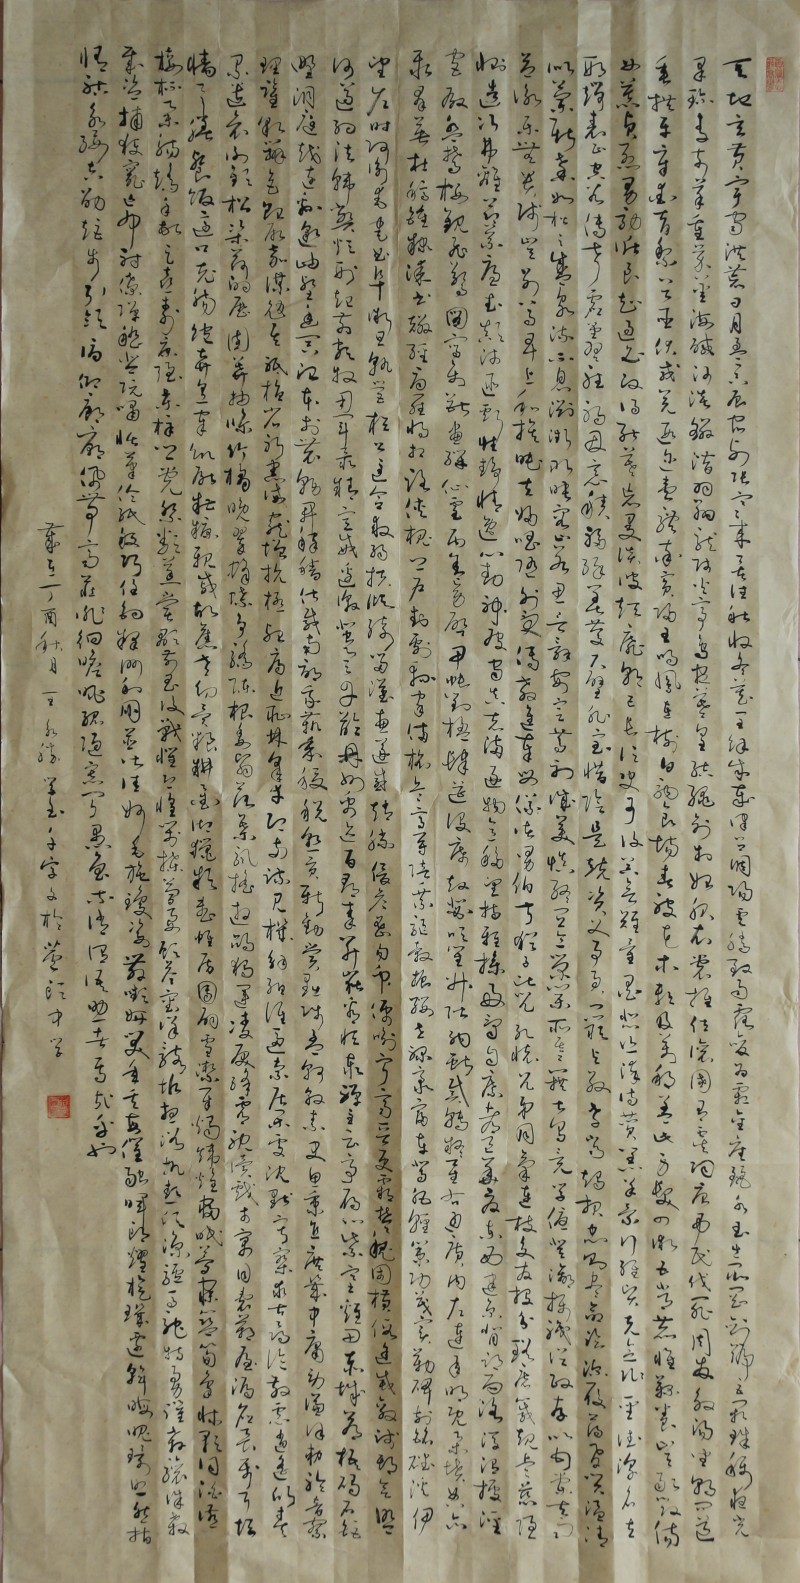 天地玄黄宇宙洪荒日月盈昃辰宿列张寒来暑往秋收冬藏闰余成岁律吕调阳云腾致雨露结为霜金生丽水玉出昆冈剑号巨阙珠称夜光
果珍李柰菜重芥姜海咸河淡鳞潜羽翔龙师火帝鸟官人皇始制文字乃服衣裳推位让国有虞陶唐吊民伐罪周发殷汤坐朝问道
垂拱平章爱育黎首臣伏戎羌遐迩一体率宾归王鸣凤在树白驹食场化被草木赖及万方盖此身发四大五常恭惟鞠养岂敢毁伤
女慕贞洁男效才良知过必改得能莫忘罔谈彼短靡恃己长信使可覆器欲难量墨悲丝染诗赞羔羊景行维贤克念作圣德建名立
形端表正空谷传声虚堂习听祸因恶积福缘善庆尺璧非宝寸阴是竞资父事君曰严与敬孝当竭力忠则尽命临深履薄夙兴温凊
似兰斯馨如松之盛川流不息渊澄取映容止若思言辞安定笃初诚美慎终宜令荣业所基籍甚无竟学优登仕摄职从政存以甘棠去而
益咏乐殊贵贱礼别尊卑上和下睦夫唱妇随外受傅训入奉母仪诸姑伯叔犹子比儿孔怀兄弟同气连枝交友投分切磨箴规仁慈隐
恻造次弗离节义廉退颠沛匪亏性静情逸心动神疲守真志满逐物意移坚持雅操好爵自縻都邑华夏东西二京背邙面洛浮渭据泾
宫殿盘郁楼观飞惊图写禽兽画彩仙灵丙舍旁启甲帐对楹肆筵设席鼓瑟吹笙升阶纳陛弁转疑星右通广内左达承明既集坟典亦
聚群英杜稿钟隶漆书壁经府罗将相路侠槐卿户封八县家给千兵高冠陪辇驱毂振缨世禄侈富车驾肥轻策功茂实勒碑刻铭磻溪伊
尹佐时阿衡奄宅曲阜微旦孰营桓公匡合济弱扶倾绮回汉惠说感武丁俊乂密勿多士寔宁晋楚更霸赵魏困横假途灭虢践土会盟
何遵约法韩弊烦刑起翦颇牧用军最精宣威沙漠驰誉丹青九州禹迹百郡秦并岳宗泰岱禅主云亭雁门紫塞鸡田赤城昆池碣石钜
野洞庭旷远绵邈岩岫杳冥治本于农务兹稼穑俶载南亩我艺黍稷税熟贡新劝赏黜陟孟轲敦素史鱼秉直庶几中庸劳谦谨敕聆音察
理鉴貌辨色贻厥嘉猷勉其祗植省躬讥诫宠增抗极殆辱近耻林皋幸即两疏见机解组谁逼索居闲处沉默寂寥求古寻论散虑逍遥欣奏
累遣戚谢欢招渠荷的历园莽抽条枇杷晚翠梧桐早凋陈根委翳落叶飘摇游鹍独运凌摩绛霄耽读玩市寓目囊箱易輶攸畏属耳垣
墙具膳餐饭适口充肠饱饫烹宰饥厌糟糠亲戚故旧老少异粮妾御绩纺侍巾帷房纨扇圆洁银烛炜煌昼眠夕寐蓝笋象床弦歌酒宴
接杯举觞矫手顿足悦豫且康嫡后嗣续祭祀烝尝稽颡再拜悚惧恐惶笺牒简要顾答审详骸垢想浴执热愿凉驴骡犊特骇跃超骧诛斩
贼盗捕获叛亡布射僚丸嵇琴阮啸恬笔伦纸钧巧任钓释纷利俗并皆佳妙毛施淑姿工颦妍笑年矢每催曦晖朗曜璇玑悬斡晦魄环照指
薪修祜永绥吉劭矩步引领俯仰廊庙束带矜庄徘徊瞻眺孤陋寡闻愚蒙等诮谓语助者焉哉乎也
岁在丁酉秋月王永胜书千字文于中学